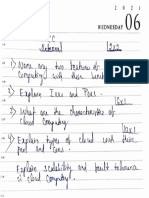 2021
WEDNESDAY 06
CC
Internal 12x2
1) Name any two features of cloud
Computing with their benefits
2) Explain Iaas and Paas.
12x1
3) What are the characteristics of
cloud Computing?
12x1
4) Explain types of cloud with their
pros and Cons.
Explain scalability and fault tolerance
in cloud Computing?